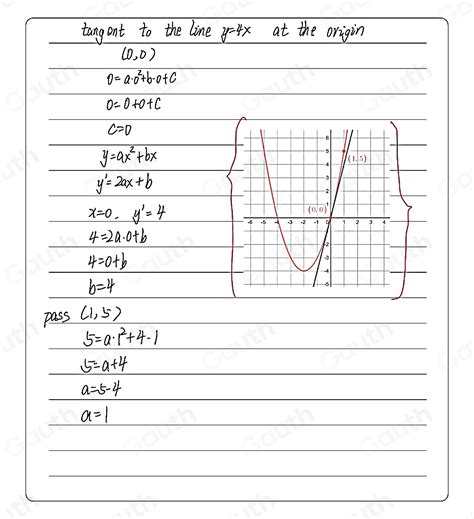 tangent to the line y=4x at the origin
(0,0)
0=a·0²+b·0+c
0=0+0+c
c=0
y=ax²+bx
y'=2ax+b
x=0. y'=4
4=2a·0+b
4=0+b
b=4
pass (1,5)
5=a·1²+4·1
5=a+4
a=5-4
a=1
(1, 5)
(0, 0)
6
5
4
3
2
1
-6 -5 -4 -3 -2 -1 0 1 2 3 4
-2
-3
-4
-5
Gauth